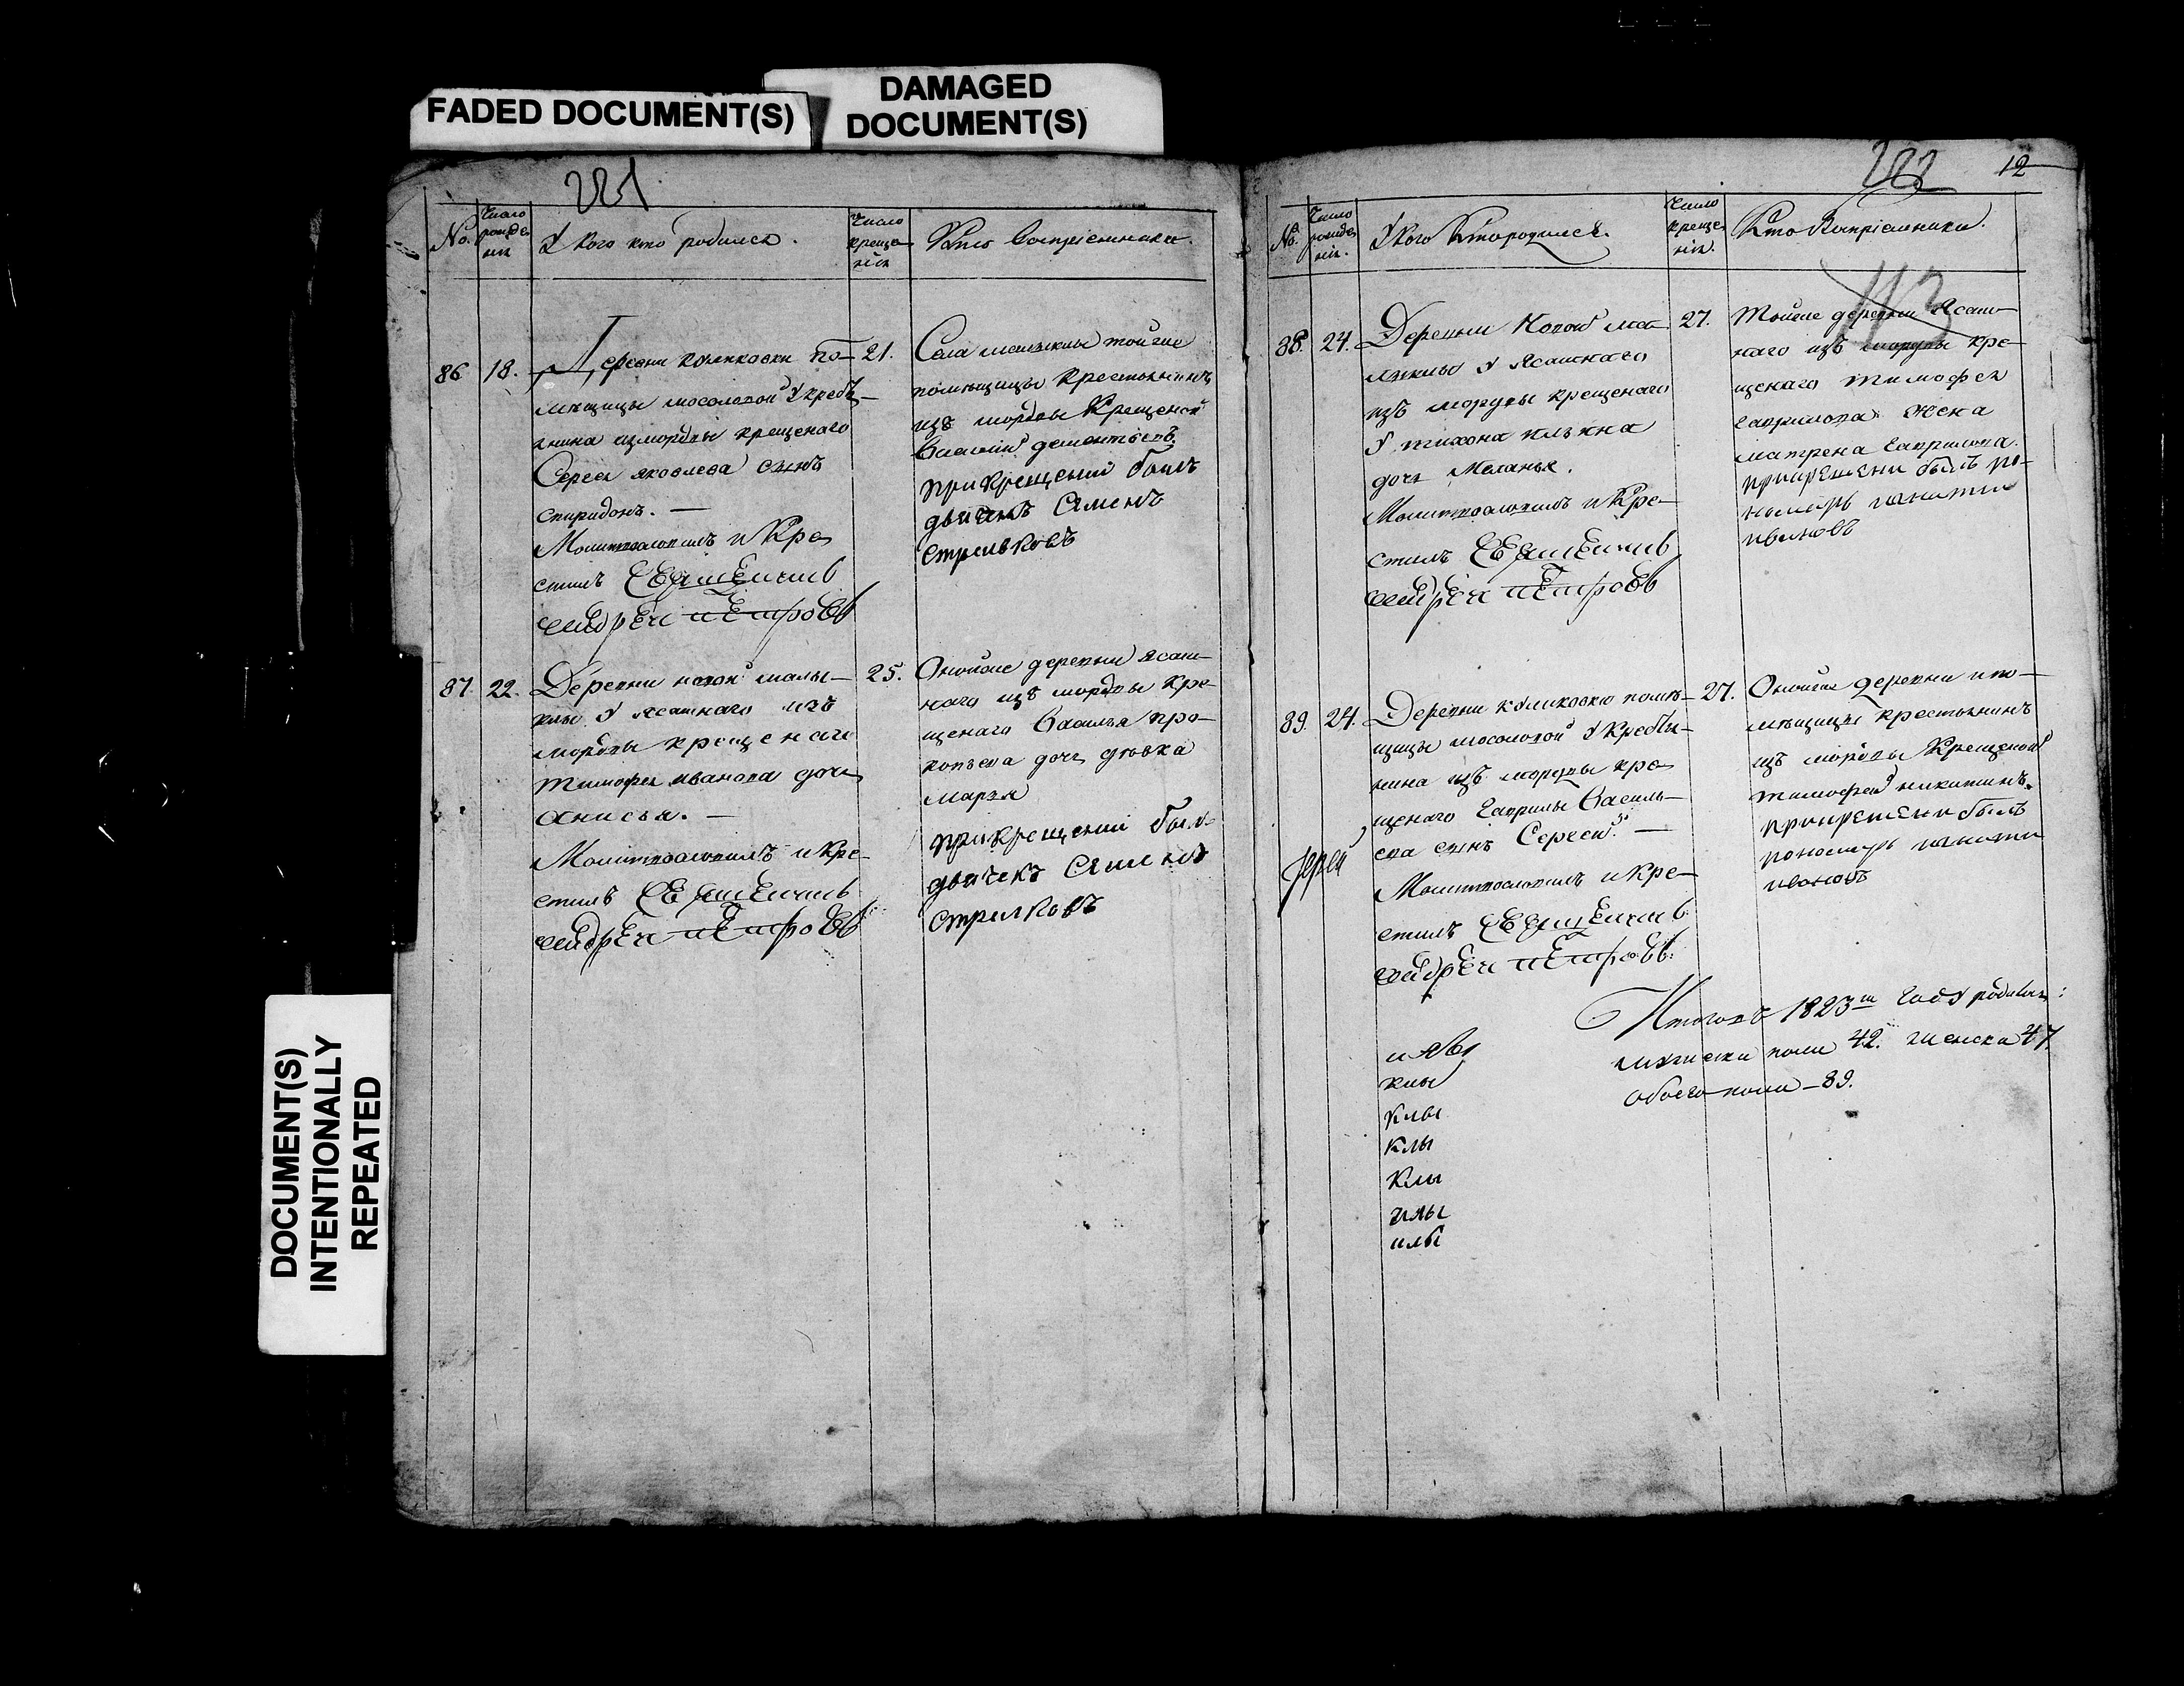 FADED DOCUMENT(S)
DAMAGED
DOCUMENT(S)
DOCUMENT(S)
INTENTIONALLY
REPEATED
221
No.
Число
рожде
нія
У кого кто родился.
Число
креще
нія
Кто Воспріемники.
86
18.
Деревни куликовки по-
мѣщицы мосоловой У кресть-
янина измордвы крещенаго
Сергея яковлева сынъ
спиридонъ. —
Молитвословилъ и Кре
стилъ Священникъ
Андрей Петровъ
21.
Села малыклы тойже
помѣщицы крестьянинъ
изъ мордвы Крещеной
Василій дементьевъ
При Крещеніи былъ
дьячекъ Семенъ
Стрелковъ
87.
22.
Деревни новой малы-
клы У Ясашнаго изъ
мордвы крещенаго
тимофея иванова дочь
анисья. —
Молитвословилъ и Кре-
стилъ Священникъ
Андрей Петровъ
25.
Оной же деревни Ясаш-
наго изъ мордвы кре-
щенаго Василья про-
копьева дочь дѣвка
марья
при Крещеніи былъ
дьячекъ Семенъ
Стрелковъ
222
12
No.
Число
рожде
нія.
У кого Кто родился.
Число
креще
нія.
Кто Воспріемники.
113
88.
24.
Деревни Новой ма
лыклы У Ясашнаго
изъ мордвы крещенаго
У тихона
дочь Меланья.
Молитвословилъ и Кре-
стилъ Священникъ
Андрей Петровъ
27.
Тойже деревни Ясаш-
наго изъ мордвы кре-
щенаго тимофея
гаврилова жена
матрена гаврилова.
при крещени былъ по-
номарь
ивановъ
89.
24.
Деревни куликовки помѣ-
щицы мосоловой У кресть-
янина изъ мордвы кре
щенаго гаврилы Василь-
ева сынъ Сергей. —
Іерей
Молитвословилъ и кре-
стилъ Священникъ
Андрей Петровъ.
27.
Оной же деревни и по-
мѣщицы крестьянинъ
изъ мордвы Крещеной
тимофей никитинъ.
при крещени былъ
пономарь
ивановъ
Итого въ 1823м Году родилось:
мужеска полу 42. женска 47.
обоего полу — 89.
клы
клы
клы
клы